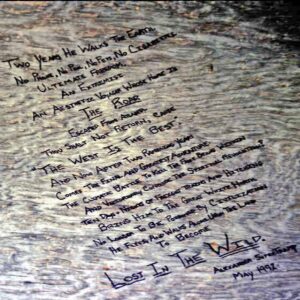 Two Years He Walks The Earth
No Phone, No Pool, No Pets, No Cigarettes
Ultimate Freedom
An Extremist
An Aesthetic Voyager Whose Home Is
The Road
Escaped From Atlanta
Thou Shalt Not Return, 'Cause
"The West Is The Best"
And Now After Two Rambling Years
Comes The Final And Greatest Adventure
The Climactic Battle To Kill The False Being Within
And Victoriously Conclude The Spiritual Revolution!
Ten Days And Nights of Freight Trains And Hitching
Bring Him To The Great White North
No Longer To Be Poisoned By Civilization
He Flees, And Walks Alone Upon The Land
To Become
Lost In The Wild.
Alexander Supertramp
May 1992